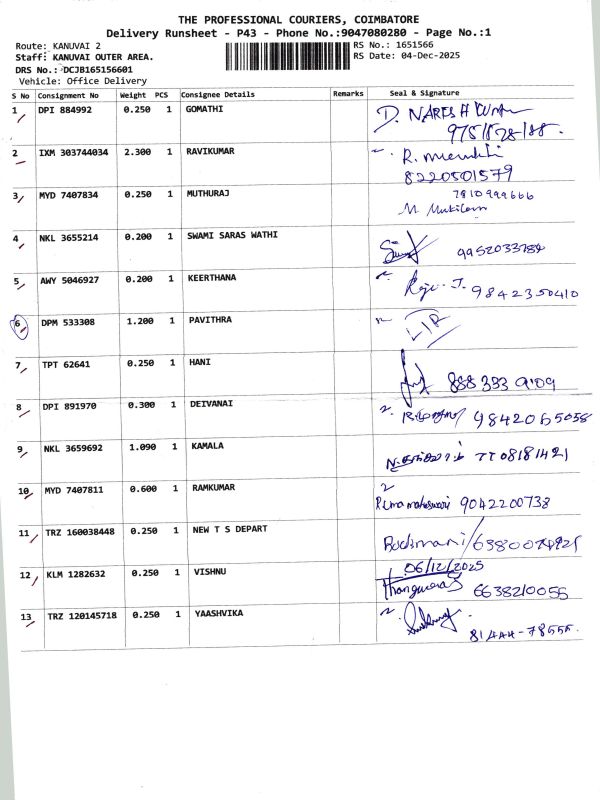 THE PROFESSIONAL COURIERS, COIMBATORE
Delivery Runsheet - P43 - Phone No.:9047080280 - Page No.:1
Route: KANUVAI 2
RS No.: 1651566
Staff: KANUVAI OUTER AREA.
RS Date: 04-Dec-2025
DRS No.: DCJB165156601
Vehicle: Office Delivery
S No Consignment No Weight PCS Consignee Details Remarks Seal & Signature
1 DPI 884992 0.250 1 GOMATHI D. NARESH KUMAR
2 IXM 303744034 2.300 1 RAVIKUMAR R.
8220501579
3 MYD 7407834 0.250 1 MUTHURAJ 7810999666
M
4 NKL 3655214 0.200 1 SWAMI SARAS WATHI
5 AWY 5046927 0.200 1 KEERTHANA Raju. J. 9842350410
6 DPM 533308 1.200 1 PAVITHRA
7 TPT 62641 0.250 1 HANI 888 333 9109
8 DPI 891970 0.300 1 DEIVANAI 9842065058
9 NKL 3659692 1.090 1 KAMALA 7708181421
10 MYD 7407811 0.600 1 RAMKUMAR
R.Uma maheswari 9042200738
11 TRZ 160038448 0.250 1 NEW T S DEPART Rukmani
06/12/2025
12 KLM 1282632 0.250 1 VISHNU 6638210056
13 TRZ 120145718 0.250 1 YAASHVIKA